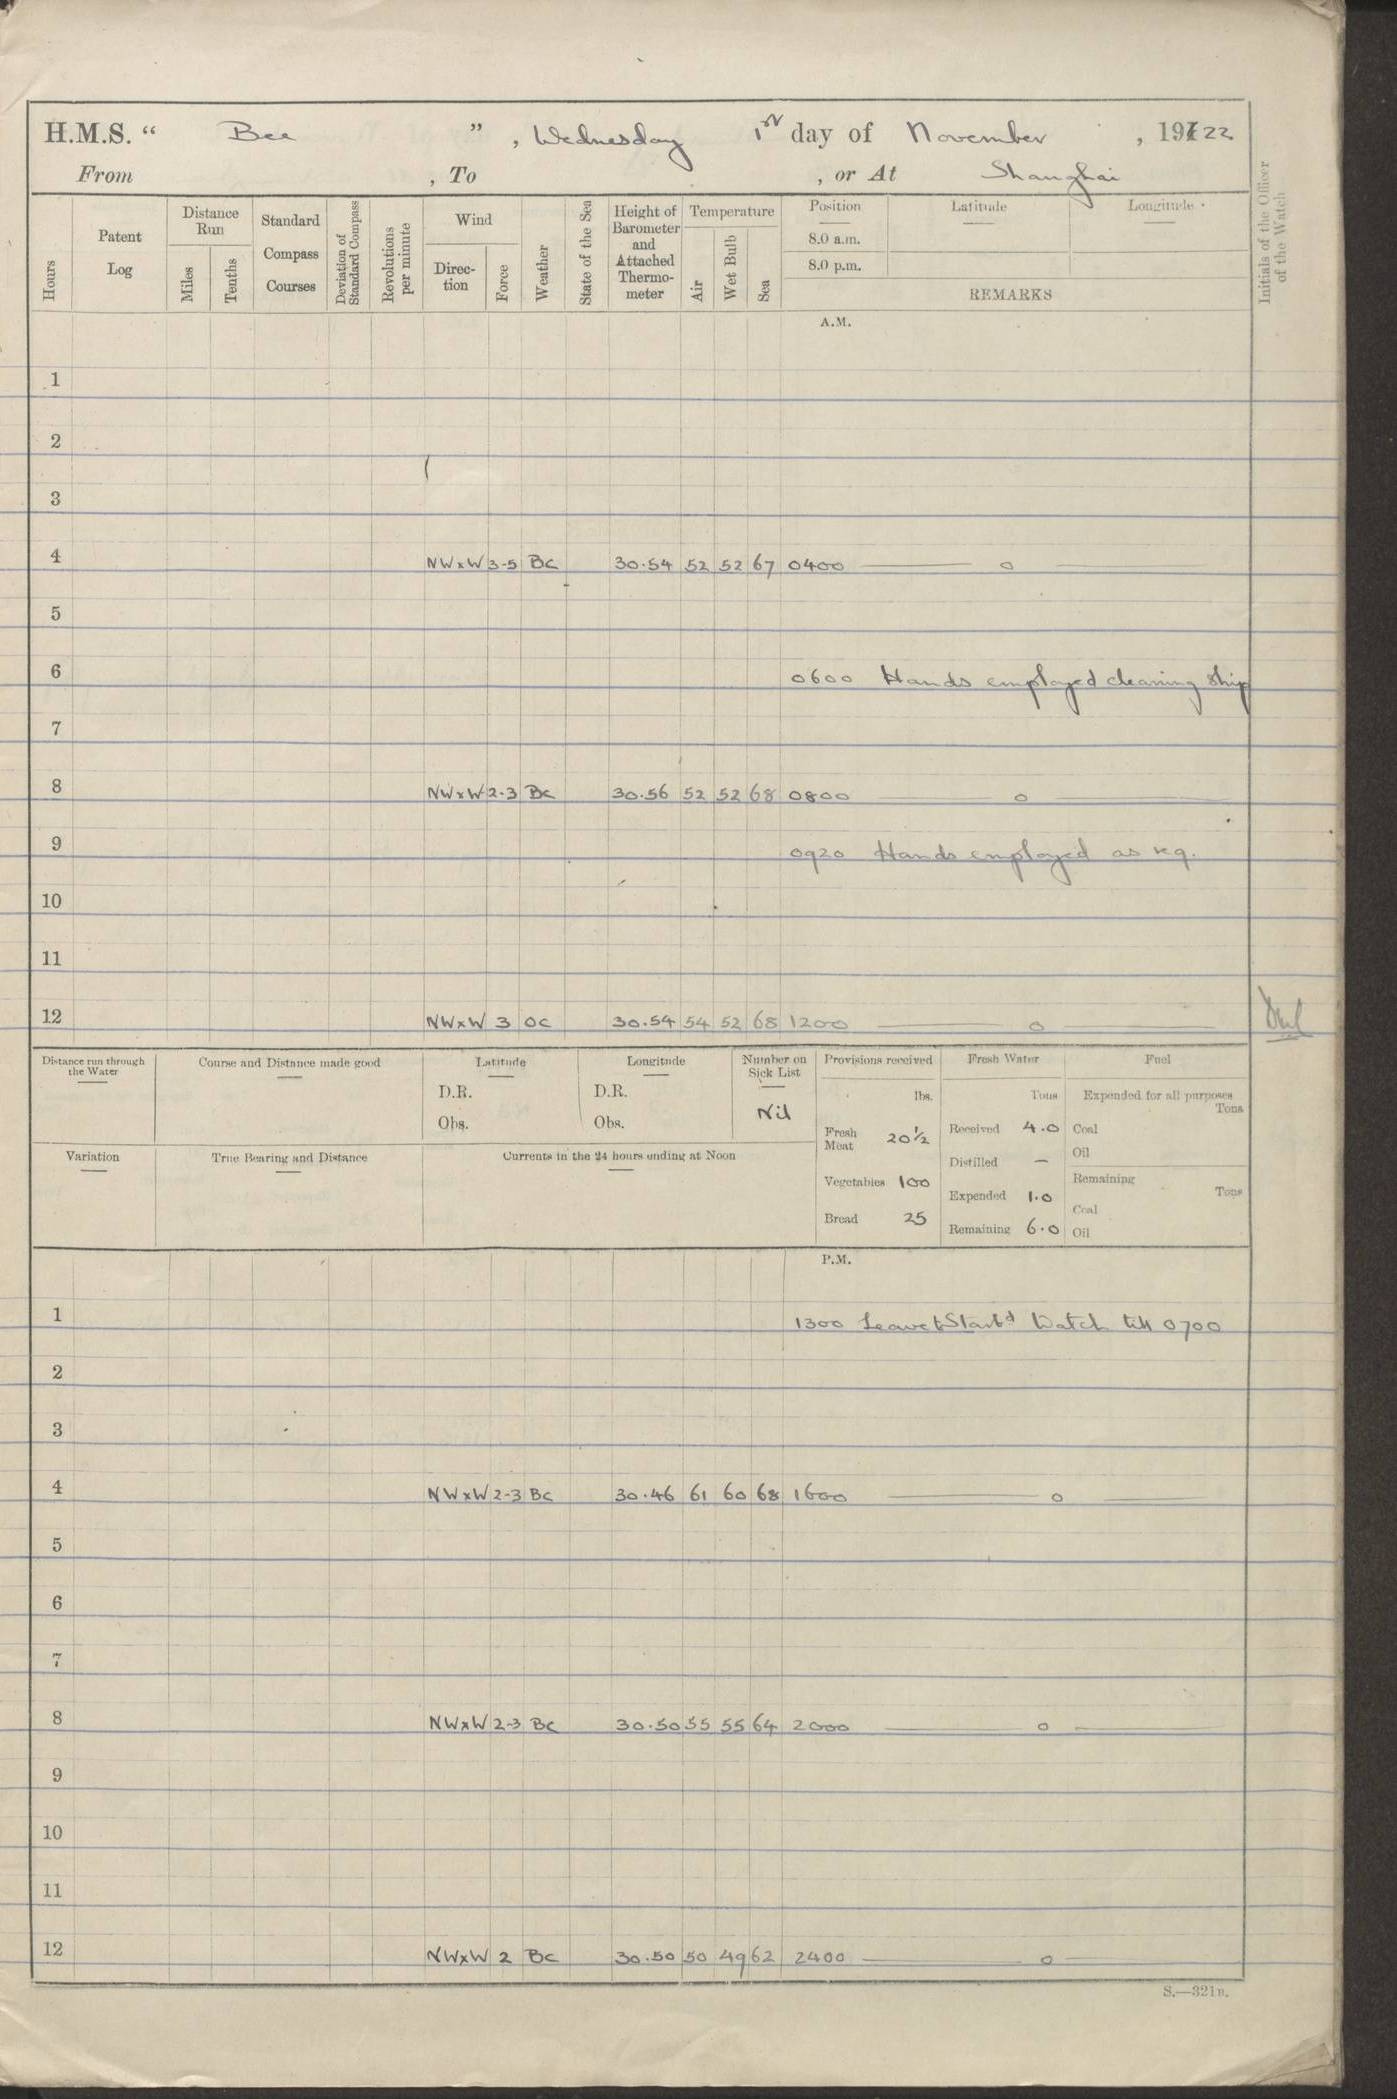 H.M.S. “ Bee ” , Wednesday 1st day of November , 1922
From , To , or At Shanghai
Hours
Patent Log
Distance Run
Miles
Tenths
Standard Compass Courses
Deviation of Standard Compass
Revolutions per minute
Wind
Direc-tion
Force
Weather
State of the Sea
Height of Barometer and Attached Thermo-meter
Temperature
Air
Wet Bulb
Sea
Position Latitude Longitude
8.0 a.m.
8.0 p.m.
REMARKS
Initials of the Officer of the Watch
A.M.
1
2
3
4 NWxW 3-5 BC 30.54 52 52 67 0400 — o —
5
6 0600 Hands employed cleaning ship
7
8 NWxW 2-3 BC 30.56 52 52 68 0800 — o —
9 0920 Hands employed as req.
10
11
12 NWxW 3 OC 30.54 54 52 68 1200 — o
Distance run through the Water
Course and Distance made good
Latitude
D.R.
Obs.
Longitude
D.R.
Obs.
Number on Sick List
Nil
Variation
True Bearing and Distance
Currents in the 24 hours ending at Noon
Provisions received
lbs.
Fresh Meat 20½
Vegetables 100
Bread 25
Fresh Water
Tons
Received 4.0
Distilled —
Expended 1.0
Remaining 6.0
Fuel
Expended for all purposes
Tons
Coal
Oil
Remaining
Tons
Coal
Oil
P.M.
1 1300 Leave to Starbd Watch till 0700
2
3
4 NWxW 2-3 BC 30.46 61 60 68 1600 — o —
5
6
7
8 NWxW 2-3 BC 30.50 55 55 64 2000 — o —
9
10
11
12 NWxW 2 BC 30.50 50 49 62 2400 — o —
S.—321B.